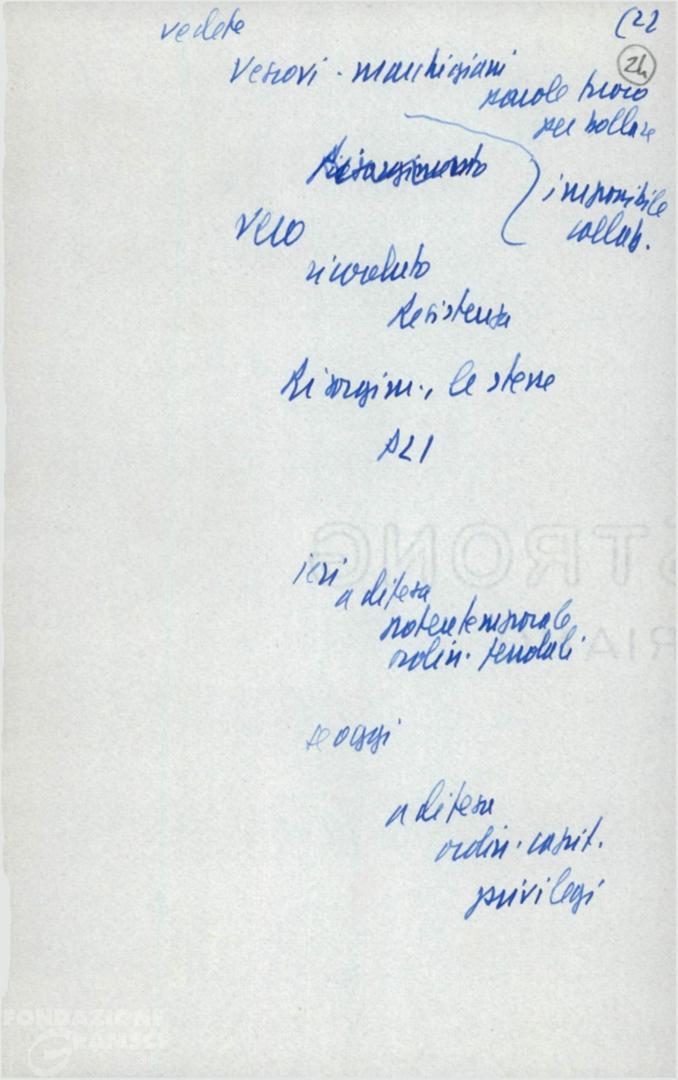 vedete
(22
24
Vescovi - marchigiani
parole fuoco
per bollare
Risorgimento
imponibile
collab.
vero
ricordato
Resistenza
Risorgim., le stesse
PLI
ieri
a difesa
potere temporale
ordin. feudali
e oggi
a difesa
ordin. capit.
privilegi
STRONG
RIA
FONDAZIONE
GRAMSCI